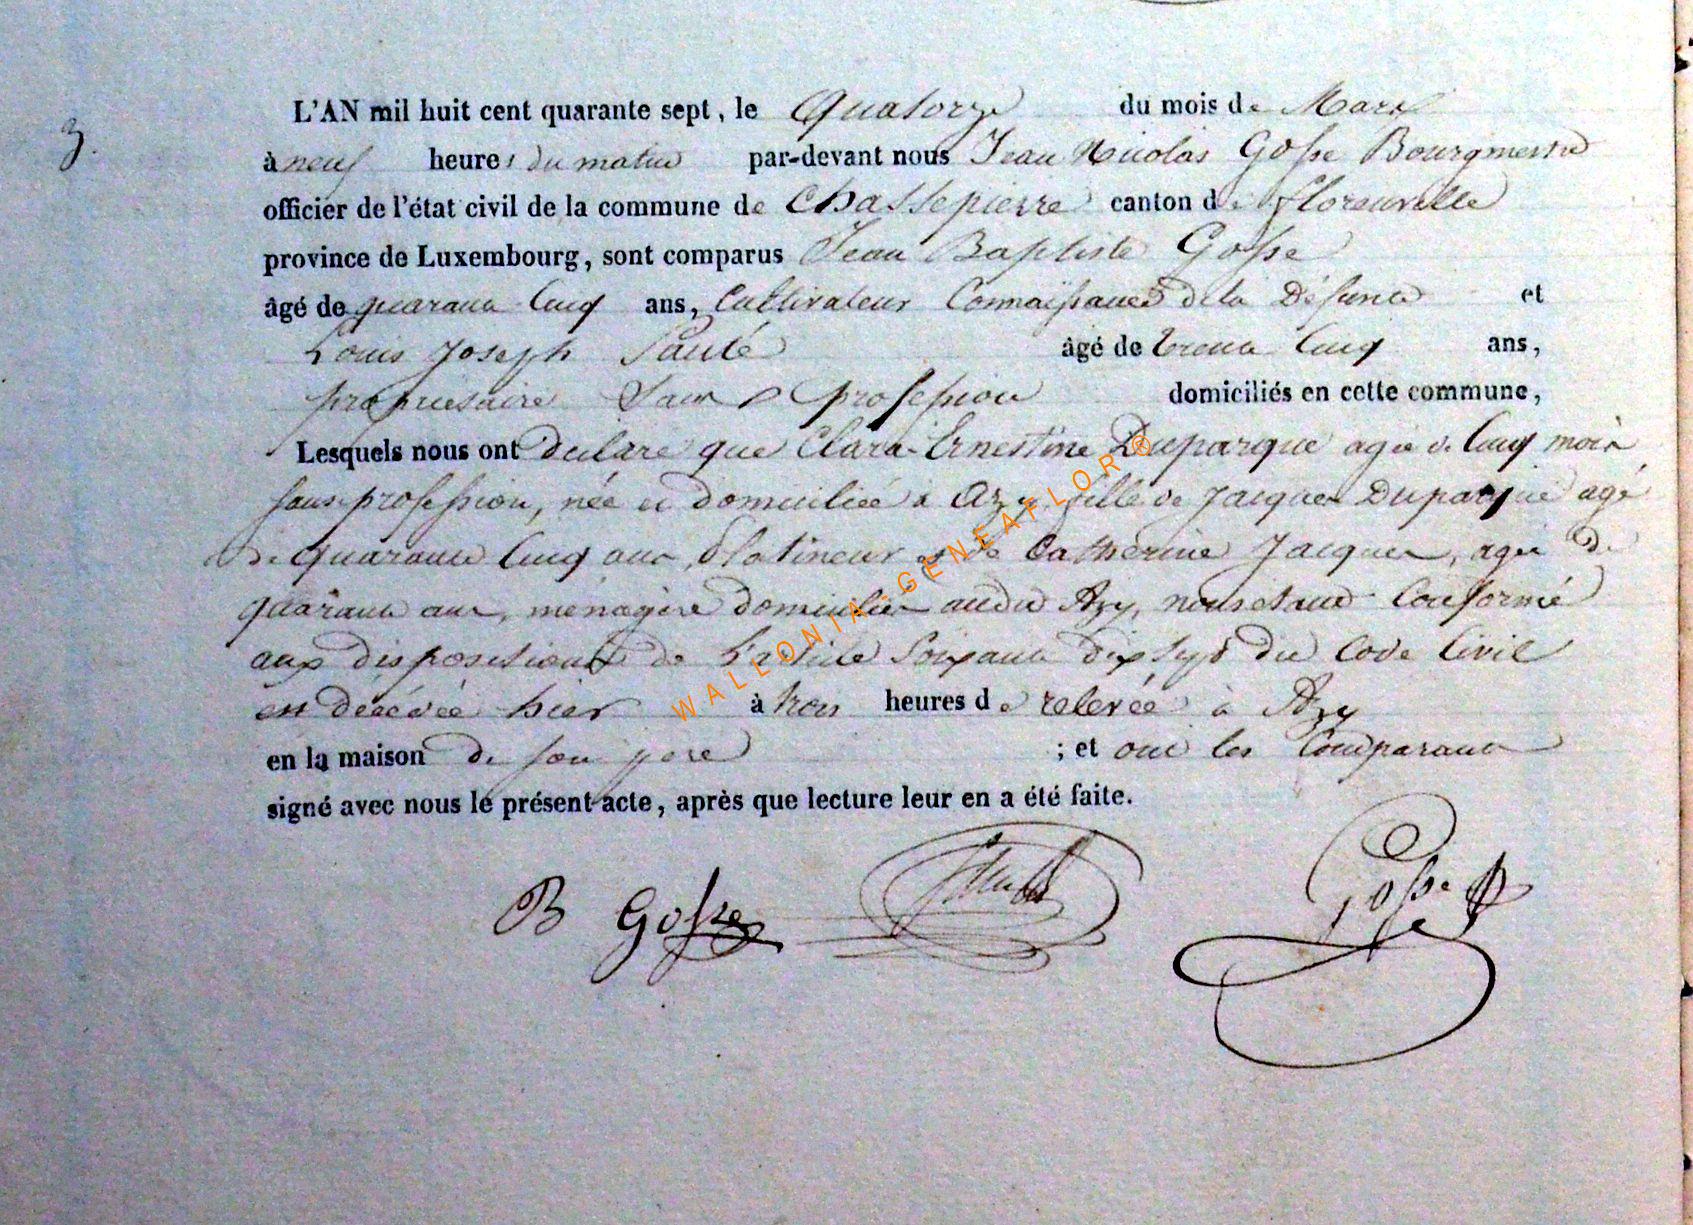 3.
L'AN mil huit cent quarante sept, le Quatorze du mois de Mars
à neuf heures du matin par-devant nous Jean Nicolas Gosse Bourgmestre
officier de l'état civil de la commune de Chassepierre canton de florenville
province de Luxembourg, sont comparus Jean Baptiste Gosse
âgé de quarante Cinq ans, Cultivateur Connaissance de la Défunte et
Louis Joseph Pauté âgé de trente Cinq ans,
propriétaire Sans profession domiciliés en cette commune,
Lesquels nous ont déclaré que Clara-Ernestine Duparque agée de Cinq mois
sans profession, née et domiciliée à Azy fille de Jacques Duparque agé
de quarante Cinq ans, Platineur et de Catherine Jacques, agée de
quarante ans, ménagère domiciliés audit Azy, nous étant Conformé
aux dispositions de l'article Soixante dix sept du Code Civil
est décédée hier à trois heures de relevée à Azy
en la maison de son père ; et ont les Comparants
signé avec nous le présent acte, après que lecture leur en a été faite.
B Gosse Gosse
WALLONIA-GENEAFLOR®